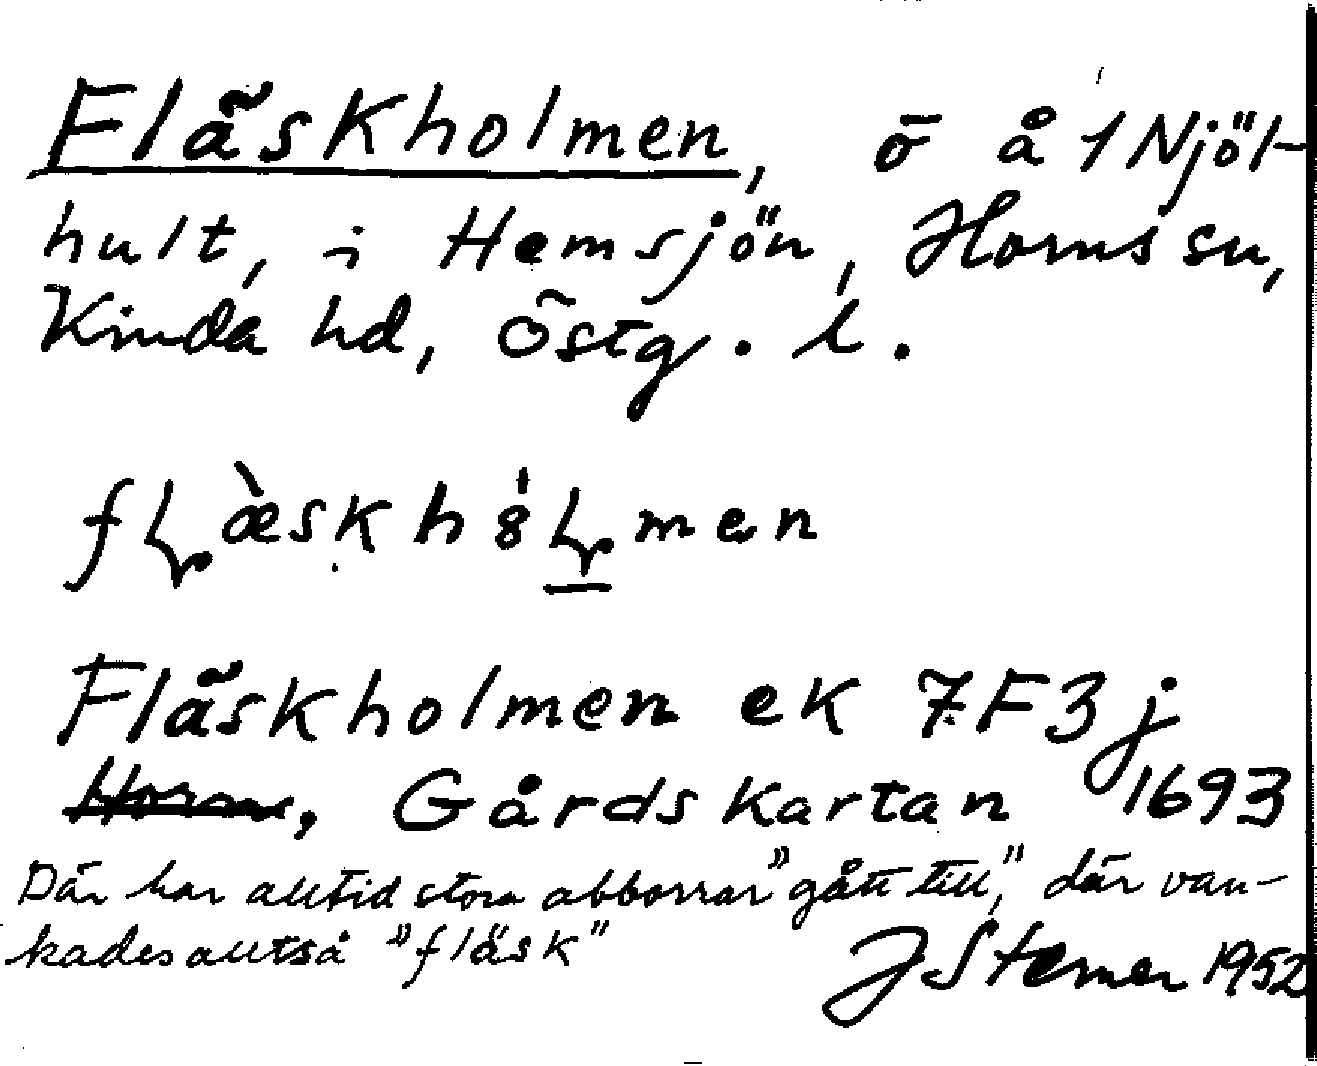 Fläskholmen, ö å 1 Njöl-
hult, i Hemsjön, Horns sn,
Kinda hd, Östg. l.
Fläskholmen ek 7F3j
Horn, Gårdskartan 1693
Där har alltid stora abborrar "gått till", där van-
kades alltså "fläsk"
J Sterner 1952